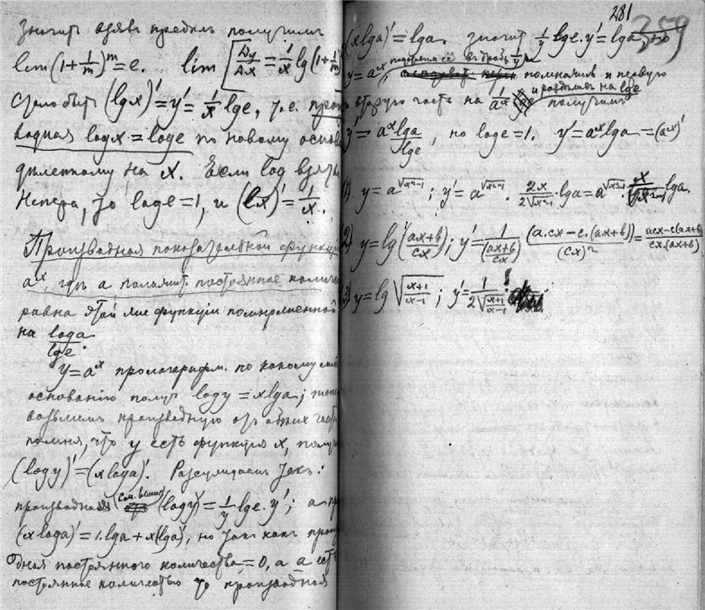 Значитъ взявъ предѣлъ получимъ
lim(1+1/m)^m=e. lim[Δy/Δx=1/x lg(1+1/m)
стало быть (lgx)'=y'=1/x lge, т.е. прои
водная logx=loge по новому основ
дѣленному на x. Если log взять
Непера, то loge=1, и (lx)'=1/x.
Производная показательной функціи
a^x, гдѣ a положит. постоянное количес
равна этой же функціи помноженной
на loga/lge.
y=a^x прологарифм. по какому ниб
основанію получ logy=xlga; тепе
возьмемъ производную отъ обѣихъ част
помня, что y есть функція x, получ
(logy)'=(xloga)'. Разсуждаемъ такъ:
производная (см. выше) (logy)'=1/y lge.y'; а пр
(xloga)'=1.lga+x(lga)', но такъ какъ произ
одная постояннаго количества=0, а a есть
постоянное количество то производная
281
359
(xlga)'=lga. значитъ 1/y lge.y'=lga
y=a^x помножить и первую
и вторую часть на a^x и раздѣлить на lge получимъ
y'=a^x lga/lge, но loge=1. y'=a^x lga=(a^x)'
1). y=a^√(x²-1); y'=a^√(x²-1) . 2x/2√(x²-1) .lga=a^√(x²-1) x/√(x²-1) lga.
2) y=lg(ax+b/cx); y'=1/(ax+b/cx) (a.cx-c.(ax+b))/(cx)²=acx-c(ax+b)/cx.(ax+b)
3) y=lg√(x+1/x-1); y'=1/2√(x+1/x-1)